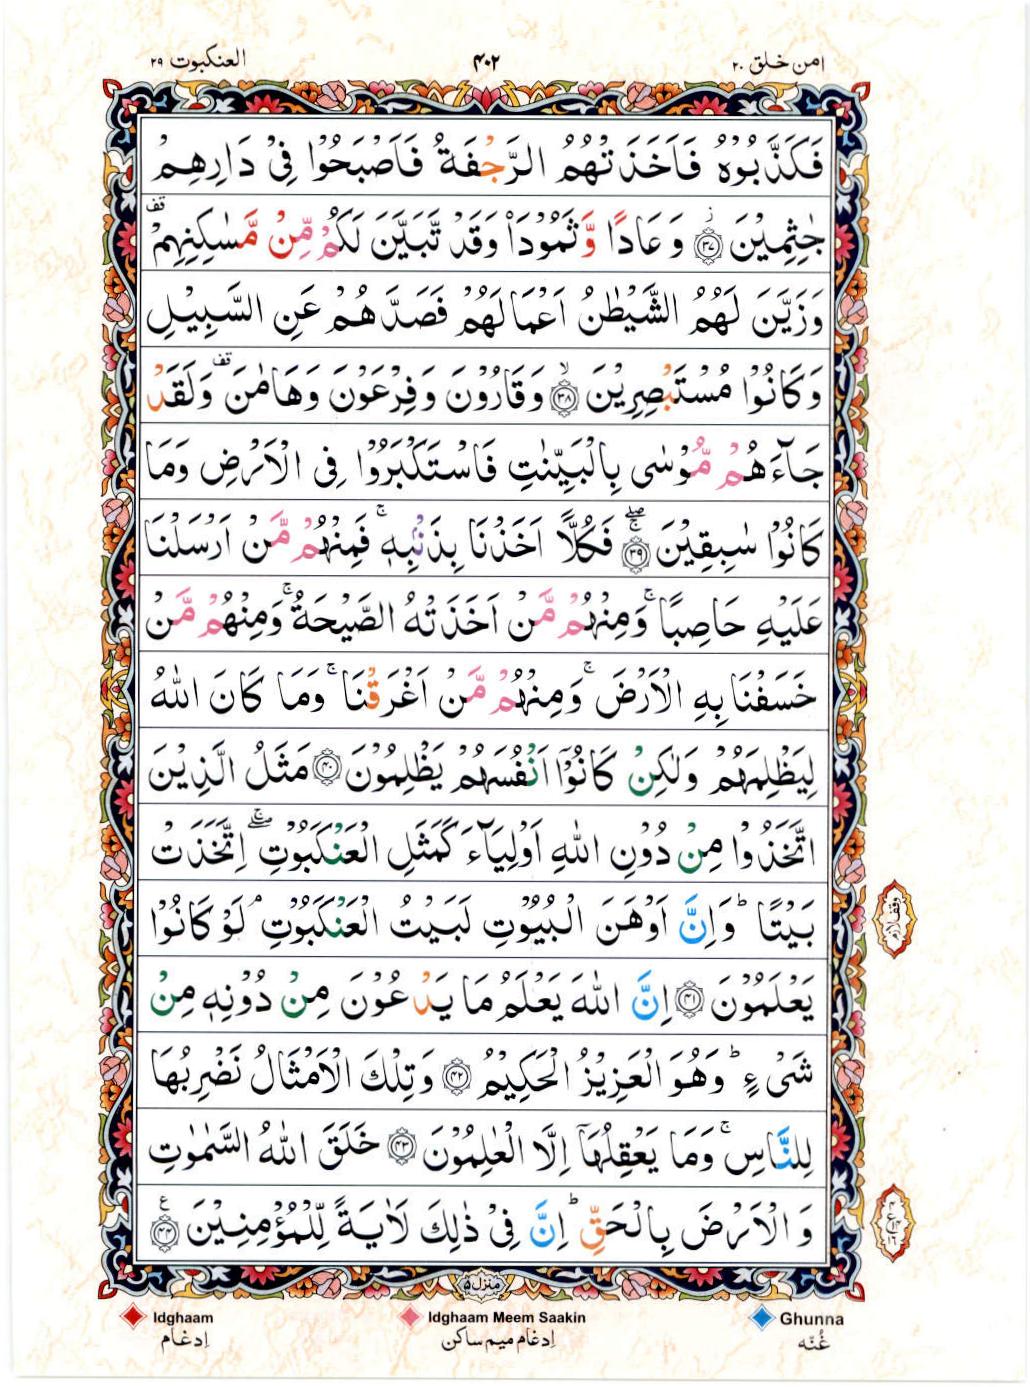 العنكبوت ٢٩
۴۰۲
امن خلق ٢٠
فَكَذَّبُوْهُ فَاَخَذَتْهُمُ الرَّجْفَةُ فَاَصْبَحُوْا فِيْ دَارِهِمْ
جٰثِمِيْنَ ﴿٣٧﴾ۙ وَعَادًا وَّثَمُوْدَا۟ وَقَدْ تَّبَيَّنَ لَكُمْ مِّنْ مَّسٰكِنِهِمْ ۫
وَزَيَّنَ لَهُمُ الشَّيْطٰنُ اَعْمَالَهُمْ فَصَدَّهُمْ عَنِ السَّبِيْلِ
وَكَانُوْا مُسْتَبْصِرِيْنَ ﴿٣٨﴾ۙ وَقَارُوْنَ وَفِرْعَوْنَ وَهَامٰنَ ۫ وَلَقَدْ
جَآءَهُمْ مُّوْسٰى بِالْبَيِّنٰتِ فَاسْتَكْبَرُوْا فِى الْاَرْضِ وَمَا
كَانُوْا سٰبِقِيْنَ ﴿٣٩﴾ۚۖ فَكُلًّا اَخَذْنَا بِذَنْۢبِهٖ ۚ فَمِنْهُمْ مَّنْ اَرْسَلْنَا
عَلَيْهِ حَاصِبًا ۚ وَمِنْهُمْ مَّنْ اَخَذَتْهُ الصَّيْحَةُ ۚ وَمِنْهُمْ مَّنْ
خَسَفْنَا بِهِ الْاَرْضَ ۚ وَمِنْهُمْ مَّنْ اَغْرَقْنَا ۚ وَمَا كَانَ اللّٰهُ
لِيَظْلِمَهُمْ وَلٰكِنْ كَانُوْۤا اَنْفُسَهُمْ يَظْلِمُوْنَ ﴿٤٠﴾ مَثَلُ الَّذِيْنَ
اتَّخَذُوْا مِنْ دُوْنِ اللّٰهِ اَوْلِيَآءَ كَمَثَلِ الْعَنْكَبُوْتِ ۚۖ اِتَّخَذَتْ
بَيْتًا ؕ وَاِنَّ اَوْهَنَ الْبُيُوْتِ لَبَيْتُ الْعَنْكَبُوْتِ ۘ لَوْ كَانُوْا
يَعْلَمُوْنَ ﴿٤١﴾ اِنَّ اللّٰهَ يَعْلَمُ مَا يَدْعُوْنَ مِنْ دُوْنِهٖ مِنْ
شَيْءٍ ؕ وَهُوَ الْعَزِيْزُ الْحَكِيْمُ ﴿٤٢﴾ وَتِلْكَ الْاَمْثَالُ نَضْرِبُهَا
لِلنَّاسِ ۚ وَمَا يَعْقِلُهَاۤ اِلَّا الْعٰلِمُوْنَ ﴿٤٣﴾ خَلَقَ اللّٰهُ السَّمٰوٰتِ
وَالْاَرْضَ بِالْحَقِّ ؕ اِنَّ فِيْ ذٰلِكَ لَاٰيَةً لِّلْمُؤْمِنِيْنَ ﴿٤٤﴾ع
وقف لازم
منزل ٥
Idghaam
Idghaam Meem Saakin
Ghunna
اِدغام
اِدغام میم ساکن
غُنّه